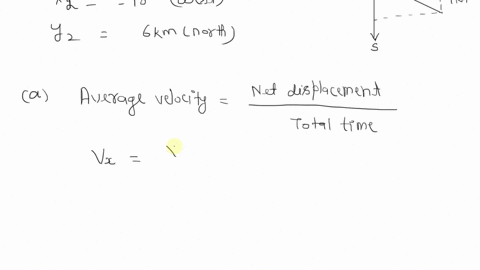 y₂ = 6km (north)
S
(a) Average velocity = Net displacement
Total time
Vx =